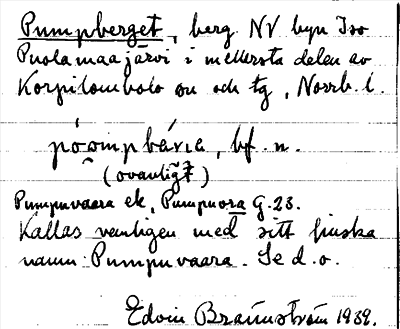 Pumpberget, berg NV byn Iso
Puolamaajärvi i mellersta delen av
Korpilombolo sn och tg, Norrb. l.
póompbǽrıe, bf. n.
(ovanligt)
Pumpuvaara ek, Pumpuora G.23.
Kallas vanligen med sitt finska
namn Pumpuvaara. Se d. o.
Edvin Brännström 1939.